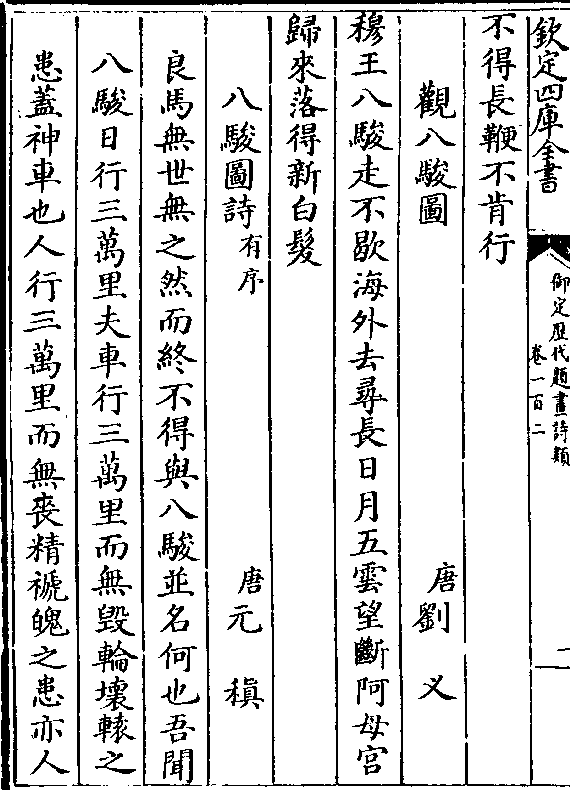 欽定四庫全書
御定歷代題畫詩類
卷一百二
不得長鞭不肯行
觀八駿圖
唐劉叉
穆王八駿走不歇海外去尋長日月五雲望斷阿母宮
歸來落得新白髮
八駿圖詩有序
唐元稹
良馬無世無之然而終不得與八駿並名何也吾聞
八駿日行三萬里夫車行三萬里而無毀輪壞轅之
患蓋神車也人行三萬里而無喪精褫魄之患亦人